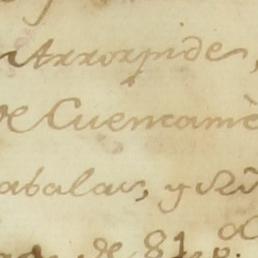 Arrorpide,
de Cuencamè
abalas, y Rñ
de 81